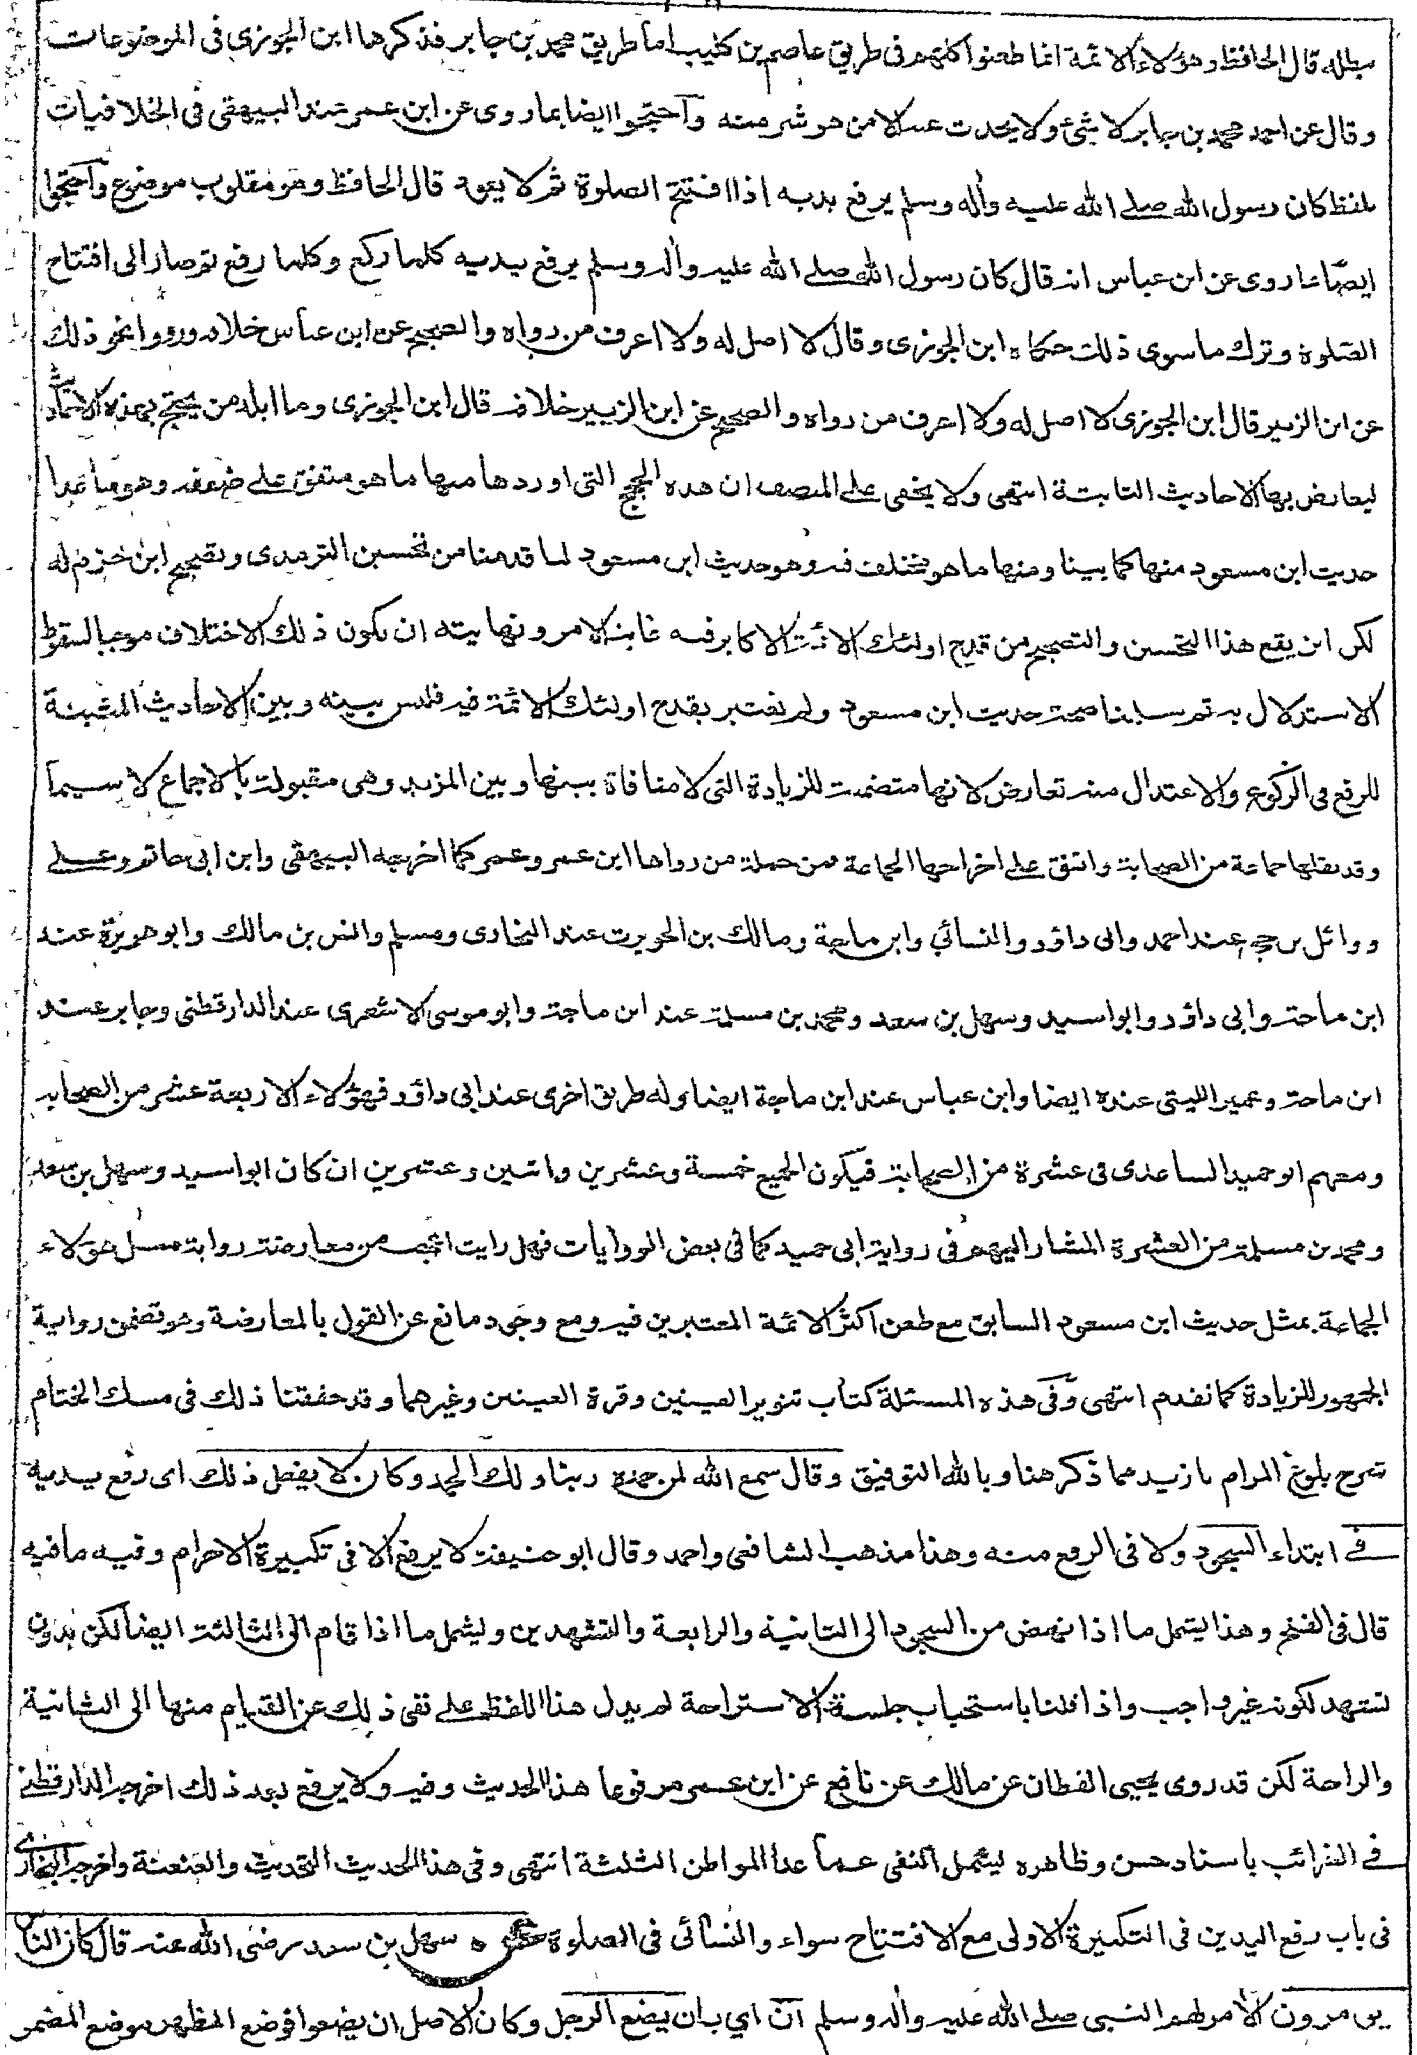 بطله قال الحافظ وهؤلاء الائمة انما طعنوا كلهم فى طريق عاصم بن كليب اما طريق محمد بن جابر فذكرها ابن الجوزى فى الموضوعات
وقال عن احمد محمد بن جابر لا شئ ولا يحدث عنه الا من هو شر منه واحتجوا ايضا بما روى عن ابن عمر عند البيهقى فى الخلافيات
بلفظ كان رسول الله صلے الله عليه واله وسلم يرفع يديه اذا افتتح الصلوة ثم لا يعود قال الحافظ وهو مقلوب موضوع واحتجوا
ايضا بما روى عن ابن عباس انه قال كان رسول الله صلے الله عليه واله وسلم يرفع يديه كلما ركع وكلما رفع ثم صار الى افتتاح
الصلوة وترك ما سوى ذلك حكاه ابن الجوزى وقال لا اصل له ولا اعرف من رواه والصحيح عن ابن عباس خلافه ورووا نحو ذلك
عن ابن الزبير قال ابن الجوزى لا اصل له ولا اعرف من رواه والصحيح عن ابن الزبير خلافه قال ابن الجوزى وما ابلد من يحتج بهذه الاحاديث
ليعارض بها الاحاديث الثابتة انتهى ولا يخفى على المنصف ان هذه الحجج التى اوردها منها ما هو متفق على ضعفه وهو ما عدا
حديث ابن مسعود منها كما بينا ومنها ما هو مختلف فيه وهو حديث ابن مسعود لما قدمنا من تحسين الترمذى وتصحيح ابن حزم له
لكن اين يقع هذا التحسين والتصحيح من قدح اولئك الائمة الاكابر فيه غاية الامر ونهايته ان يكون ذلك الاختلاف موجبا لسقوط
الاستدلال به ثم سلمنا صحة حديث ابن مسعود ولم نعتبر بقدح اولئك الائمة فيه فليس بينه وبين الاحاديث المثبتة
للرفع فى الركوع والاعتدال منه تعارض لانها متضمنة للزيادة التى لا منافاة بينها وبين المزيد وهى مقبولة بالاجماع لا سيما
وقد نقلها جماعة من الصحابة واتفق على اخراجها الجماعة فمن جملة من رواها ابن عمر وعمر كما اخرجه البيهقى وابن ابى حاتم وعلے
ووائل بن حجر عند احمد وابى داؤد والنسائي وابن ماجة ومالك بن الحويرث عند البخارى ومسلم وانس بن مالك وابو هريرة عند
ابن ماجة وابى داؤد وابو اسيد وسهل بن سعد ومحمد بن مسلمة عند ابن ماجة وابو موسى الاشعرى عند الدارقطنى وجابر عند
ابن ماجة وعمير الليثى عنده ايضا وابن عباس عند ابن ماجة ايضا وله طريق اخرى عند ابى داؤد فهؤلاء الاربعة عشر من الصحابة
ومعهم ابو حميد الساعدى فى عشرة من الصحابة فيكون الجميع خمسة وعشرين واثنين وعشرين ان كان ابو اسيد وسهل بن سعد
ومحمد بن مسلمة من العشرة المشار اليهم فى رواية ابى حميد كما فى بعض الروايات فهل رايت اعجب من معارضة رواية مثل هؤلاء
الجماعة بمثل حديث ابن مسعود السابق مع طعن اكثر الائمة المعتبرين فيه ومع وجود مانع عن القول بالمعارضة وهو تضمن رواية
الجمهور للزيادة كما تقدم انتهى وفى هذه المسئلة كتاب تنوير العينين وقرة العينين وغيرهما وقد حققنا ذلك فى مسك الختام
شرح بلوغ المرام بازيد مما ذكر هنا وبالله التوفيق وقال سمع الله لمن حمده ربنا ولك الحمد وكان لا يفعل ذلك اى رفع يديه
فے ابتداء السجود ولا فى الرفع منه وهذا مذهب الشافعى واحمد وقال ابو حنيفة لا يرفع الا فى تكبيرة الاحرام وفيه ما فيه
قال فى الفتح وهذا يشمل ما اذا نهض من السجود الى الثانية والرابعة والتشهدين ويشمل ما اذا قام الى الثالثة ايضا لكن بدون
تشهد لكونه غير واجب واذا قلنا باستحباب جلسة الاستراحة لم يدل هذا اللفظ على نفى ذلك عن القيام منها الى الثانية
والرابعة لكن قد روى يحيى القطان عن مالك عن نافع عن ابن عمر مرفوعا هذا الحديث وفيه ولا يرفع بعد ذلك اخرجه الدارقطنے
فے الغرائب باسناد حسن وظاهره يشمل النفى عما عدا المواطن الثلثة انتهى وفى هذا الحديث التحديث والعنعنة واخرجه البخارى
فى باب رفع اليدين فى التكبيرة الاولى مع الافتتاح سواء والنسائى فى الصلوة عن سهل بن سعد رضى الله عنه قال كان الناس
يومرون الامر لهم النبى صلے الله عليه واله وسلم ان اي بان يضع الرجل وكان الاصل ان يضعوا فوضع المظهر موضع المضمر